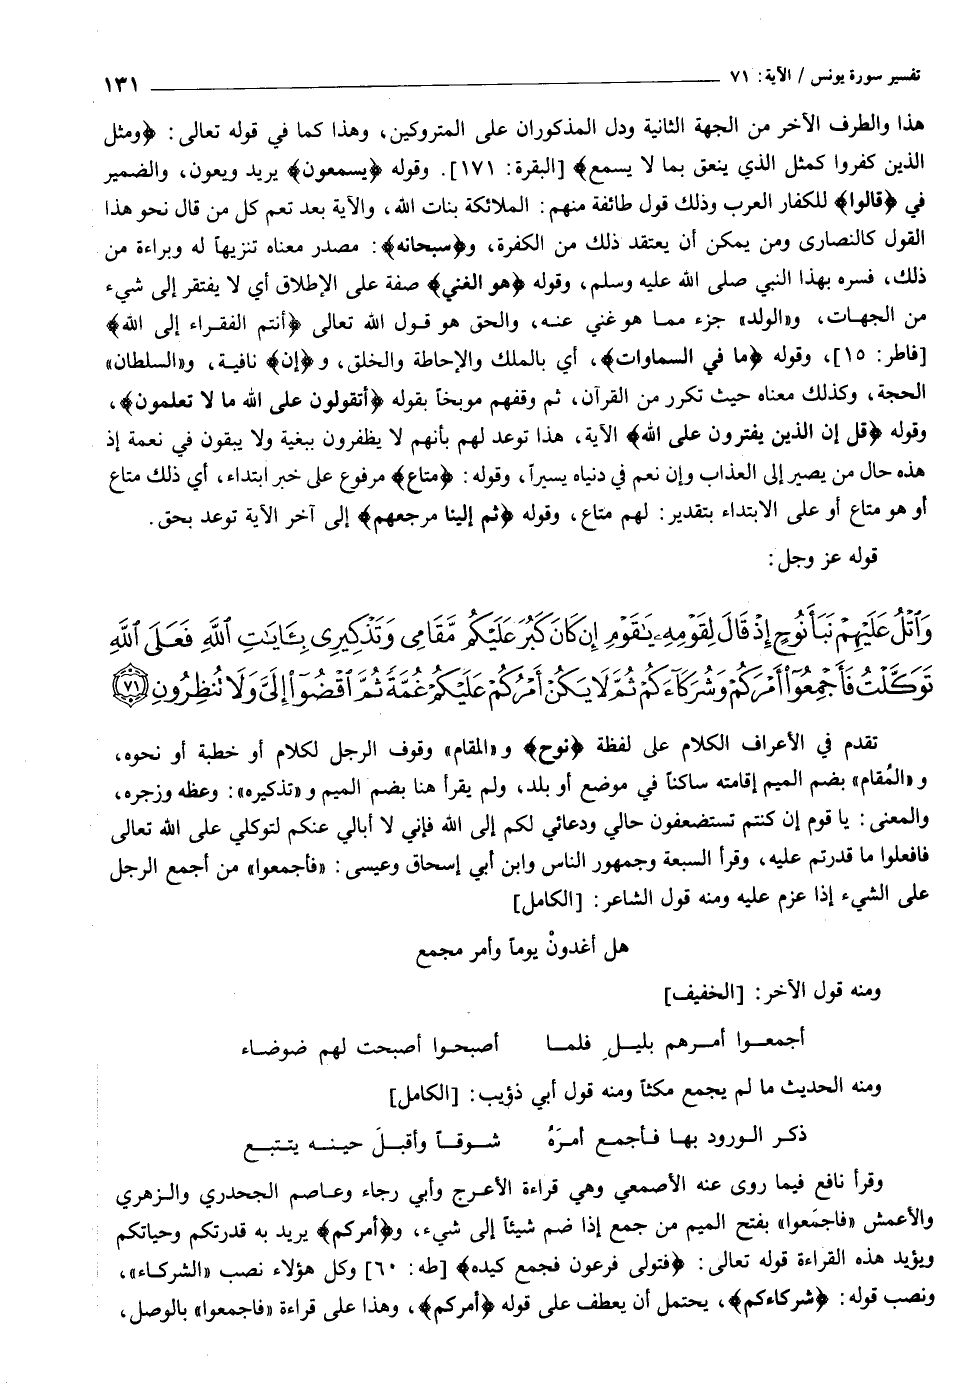 تفسير سورة يونس / الآية: ٧١ ١٣١
هذا والطرف الآخر من الجهة الثانية ودل المذكوران على المتروكين، وهذا كما في قوله تعالى: ﴿ومثل
الذين كفروا كمثل الذي ينعق بما لا يسمع﴾ [البقرة: ١٧١]. وقوله ﴿يسمعون﴾ يريد ويعون، والضمير
في ﴿قالوا﴾ للكفار العرب وذلك قول طائفة منهم: الملائكة بنات الله، والآية بعد تعم كل من قال نحو هذا
القول كالنصارى ومن يمكن أن يعتقد ذلك من الكفرة، و﴿سبحانه﴾: مصدر معناه تنزيهاً له وبراءة من
ذلك، فسره بهذا النبي صلى الله عليه وسلم، وقوله ﴿هو الغني﴾ صفة على الإطلاق أي لا يفتقر إلى شيء
من الجهات، و«الولد» جزء مما هو غني عنه، والحق هو قول الله تعالى ﴿أنتم الفقراء إلى الله﴾
[فاطر: ١٥]، وقوله ﴿ما في السماوات﴾، أي بالملك والإحاطة والخلق، و﴿إن﴾ نافية، و«السلطان»
الحجة، وكذلك معناه حيث تكرر من القرآن، ثم وقفهم موبخاً بقوله ﴿أتقولون على الله ما لا تعلمون﴾،
وقوله ﴿قل إن الذين يفترون على الله﴾ الآية، هذا توعد لهم بأنهم لا يظفرون ببغية ولا يبقون في نعمة إذ
هذه حال من يصير إلى العذاب وإن نعم في دنياه يسيراً، وقوله: ﴿متاع﴾ مرفوع على خبر ابتداء، أي ذلك متاع
أو هو متاع أو على الابتداء بتقدير: لهم متاع، وقوله ﴿ثم إلينا مرجعهم﴾ إلى آخر الآية توعد بحق.
قوله عز وجل:
وَٱتْلُ عَلَيْهِمْ نَبَأَ نُوحٍ إِذْ قَالَ لِقَوْمِهِۦ يَٰقَوْمِ إِن كَانَ كَبُرَ عَلَيْكُم مَّقَامِى وَتَذْكِيرِى بِـَٔايَٰتِ ٱللَّهِ فَعَلَى ٱللَّهِ
تَوَكَّلْتُ فَأَجْمِعُوٓا۟ أَمْرَكُمْ وَشُرَكَآءَكُمْ ثُمَّ لَا يَكُنْ أَمْرُكُمْ عَلَيْكُمْ غُمَّةً ثُمَّ ٱقْضُوٓا۟ إِلَىَّ وَلَا تُنظِرُونِ ﴿٧١﴾
تقدم في الأعراف الكلام على لفظة ﴿نوح﴾ و«المقام» وقوف الرجل لكلام أو خطبة أو نحوه،
و«المُقام» بضم الميم إقامته ساكناً في موضع أو بلد، ولم يقرأ هنا بضم الميم و«تذكيره»: وعظه وزجره،
والمعنى: يا قوم إن كنتم تستضعفون حالي ودعائي لكم إلى الله فإني لا أبالي عنكم لتوكلي على الله تعالى
فافعلوا ما قدرتم عليه، وقرأ السبعة وجمهور الناس وابن أبي إسحاق وعيسى: «فأجمعوا» من أجمع الرجل
على الشيء إذا عزم عليه ومنه قول الشاعر: [الكامل]
هل أغدونْ يوماً وأمر مجمع
ومنه قول الآخر: [الخفيف]
أجمعوا أمرهم بليلِ فلما أصبحوا أصبحت لهم ضوضاء
ومنه الحديث ما لم يجمع مكثاً ومنه قول أبي ذؤيب: [الكامل]
ذكر الورود بها فأجمع أمرَهُ شوقاً وأقبلَ حينه يتتبع
وقرأ نافع فيما روى عنه الأصمعي وهي قراءة الأعرج وأبي رجاء وعاصم الجحدري والزهري
والأعمش «فاجمَعوا» بفتح الميم من جمع إذا ضم شيئاً إلى شيء، و﴿أمركم﴾ يريد به قدرتكم وحياتكم
ويؤيد هذه القراءة قوله تعالى: ﴿فتولى فرعون فجمع كيده﴾ [طه: ٦٠] وكل هؤلاء نصب «الشركاء»،
ونصب قوله: ﴿شركاءكم﴾، يحتمل أن يعطف على قوله ﴿أمركم﴾، وهذا على قراءة «فاجمعوا» بالوصل،